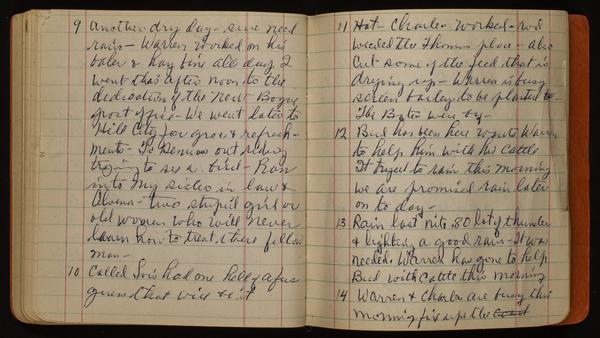 9 Another dry day - sure need
rain - Warren worked on his
baler & hay bine all day I
went this after noon to the
dedication of the New Bogue
post office - We went later to
Hill City for groc & refresh-
ments - To Denison out riding
trying to see a bird - Ran
into my sister in law &
Alvena - two stupid girls or
old women who will never
learn how to treat there fellow
man -
10 Called Lois had one hell of a fuss
guess that will be it
11 Hot - Charles worked - rod
weeded the Thomas place - also
Cut some of the feed that is
drying up - Warren is busy
screen barley to be planted -
The Bates were by -
12 Bud has been here Warren
to help him with his Cattle
It tryed to rain this morning
we are promised rain later
on to day -
13 Rain last nite .80 lot of thunder
& lighting a good rain - It was
needed. Warren has gone to help
Bud with Cattle this morning
14 Warren & Charles are busy this
morning fix up the